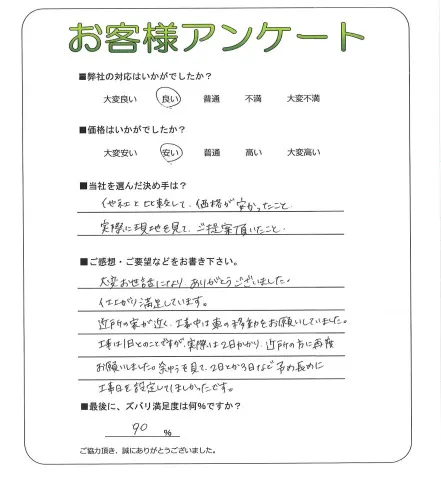 お客様アンケート
■弊社の対応はいかがでしたか?
大変良い 良い 普通 不満 大変不満
■価格はいかがでしたか?
大変安い 安い 普通 高い 大変高い
■当社を選んだ決め手は?
他社と比較して、価格が安かったこと
実際に現地を見て、ご提案頂いたこと
■ご感想・ご要望などをお書き下さい。
大変お世話になり、ありがとうございました。
仕上がり満足しています。
近所の家が近く、工事中は車の移動をお願いしていました。
工事は1日とのことですが、実際は2日かかり、近所の方に再度
お願いしました。余裕を見て、2日とか3日など予め長めに
工事日を設定してほしかったです。
■最後に、ズバリ満足度は何%ですか?
90 %
ご協力頂き、誠にありがとうございました。